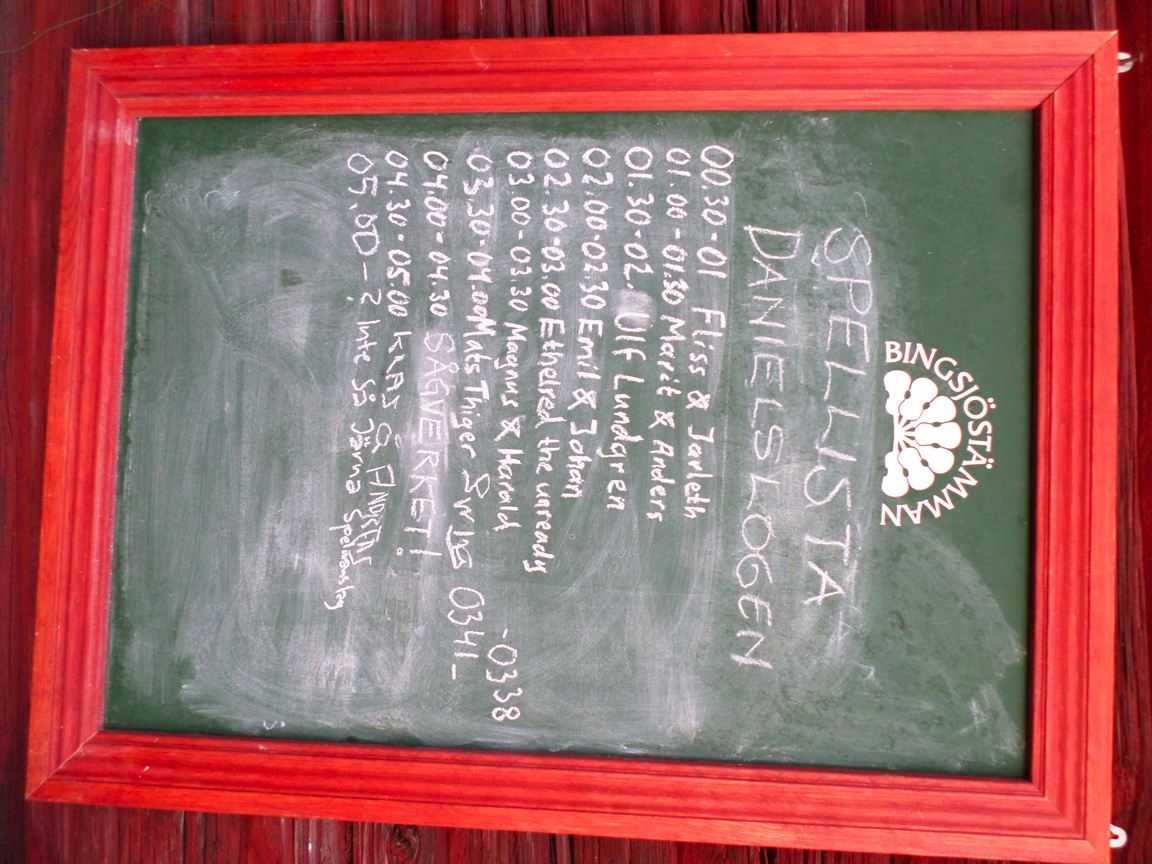 BINGSJÖSTÄMMAN
SPELLISTA
DANIELSLOGEN
00.30-01 Fliss & Javleth
01.00-01.30 Marit & Anders
01.30-02. Ulf Lundgren
02.00-02.30 Emil & Johan
02.30-03.00 Ethelred the unready
03.00-03.30 Magnus & Harald -0338
03.30-04.00 Mats Thiger Swing 0341_
04.00-04.30 SÅGVERKET!
04.30-05.00 KLAS
05.00-? Inte så Järna Spelmanslag